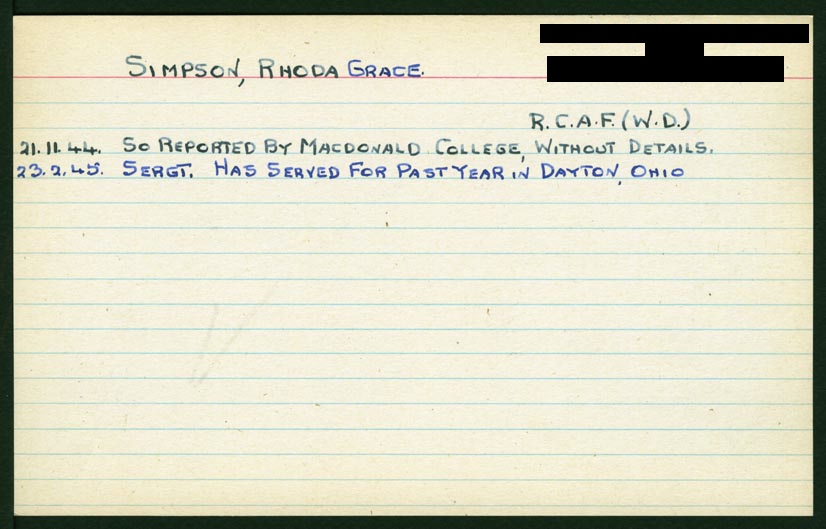 SIMPSON, RHODA GRACE.
R.C.A.F. (W.D.)
21.11.44. SO REPORTED BY MACDONALD COLLEGE, WITHOUT DETAILS.
23.2.45. SERGT. HAS SERVED FOR PAST YEAR IN DAYTON, OHIO